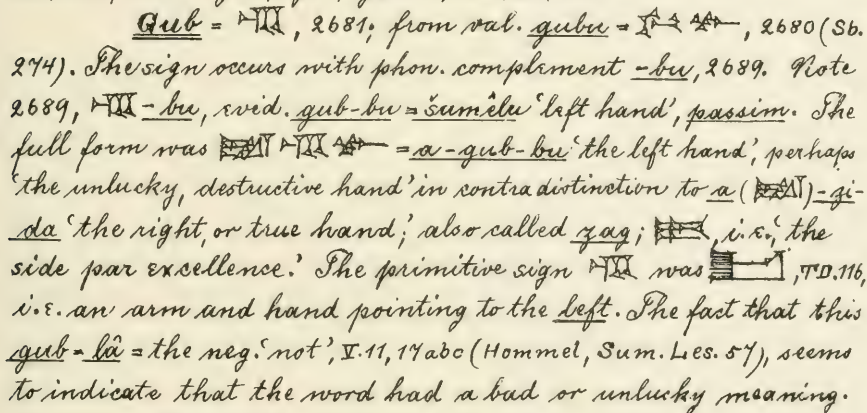 Gub = 𒆏, 2681; from val. gubu = 𒄖 𒁍, 2680 (Sb.
274). The sign occurs with phon. complement -bu, 2689. Note
2689, 𒆏-bu, evid. gub-bu = šumêlu ‘left hand’, passim. The
full form was 𒀉 𒆏 𒁍 = a-gub-bu ‘the left hand’, perhaps
‘the unlucky, destructive hand’ in contradistinction to a (𒀉)-zi-
da ‘the right, or true hand;’ also called zag; 𒍠, i.e., ‘the
side par excellence.’ The primitive sign 𒆏 was , TD. 116,
i.e. an arm and hand pointing to the left. The fact that this
gub = lâ = the neg. ‘not’, V. 11, 17abc (Hommel, Sum. Les. 57), seems
to indicate that the word had a bad or unlucky meaning.